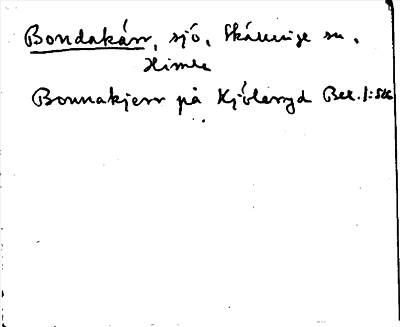 Bondakärr, sjö, Skällinge sn.
Himle
Bonnakjerr på Kjöleryd Bex. 1:526